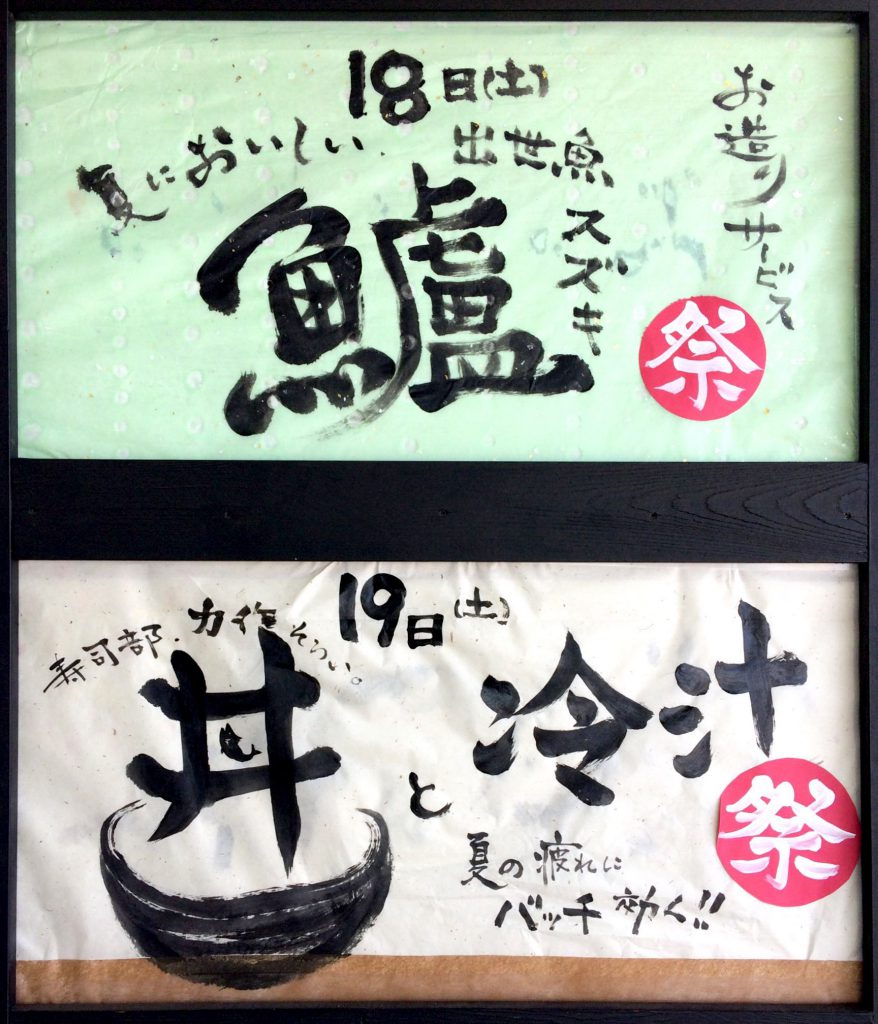 18日(土)
夏においしい
出世魚
スズキ
鱸
お造りサービス
祭
19日(土)
寿司部、力作ぞろい。
丼
と
冷汁
祭
夏の疲れに
バッチ効く!!